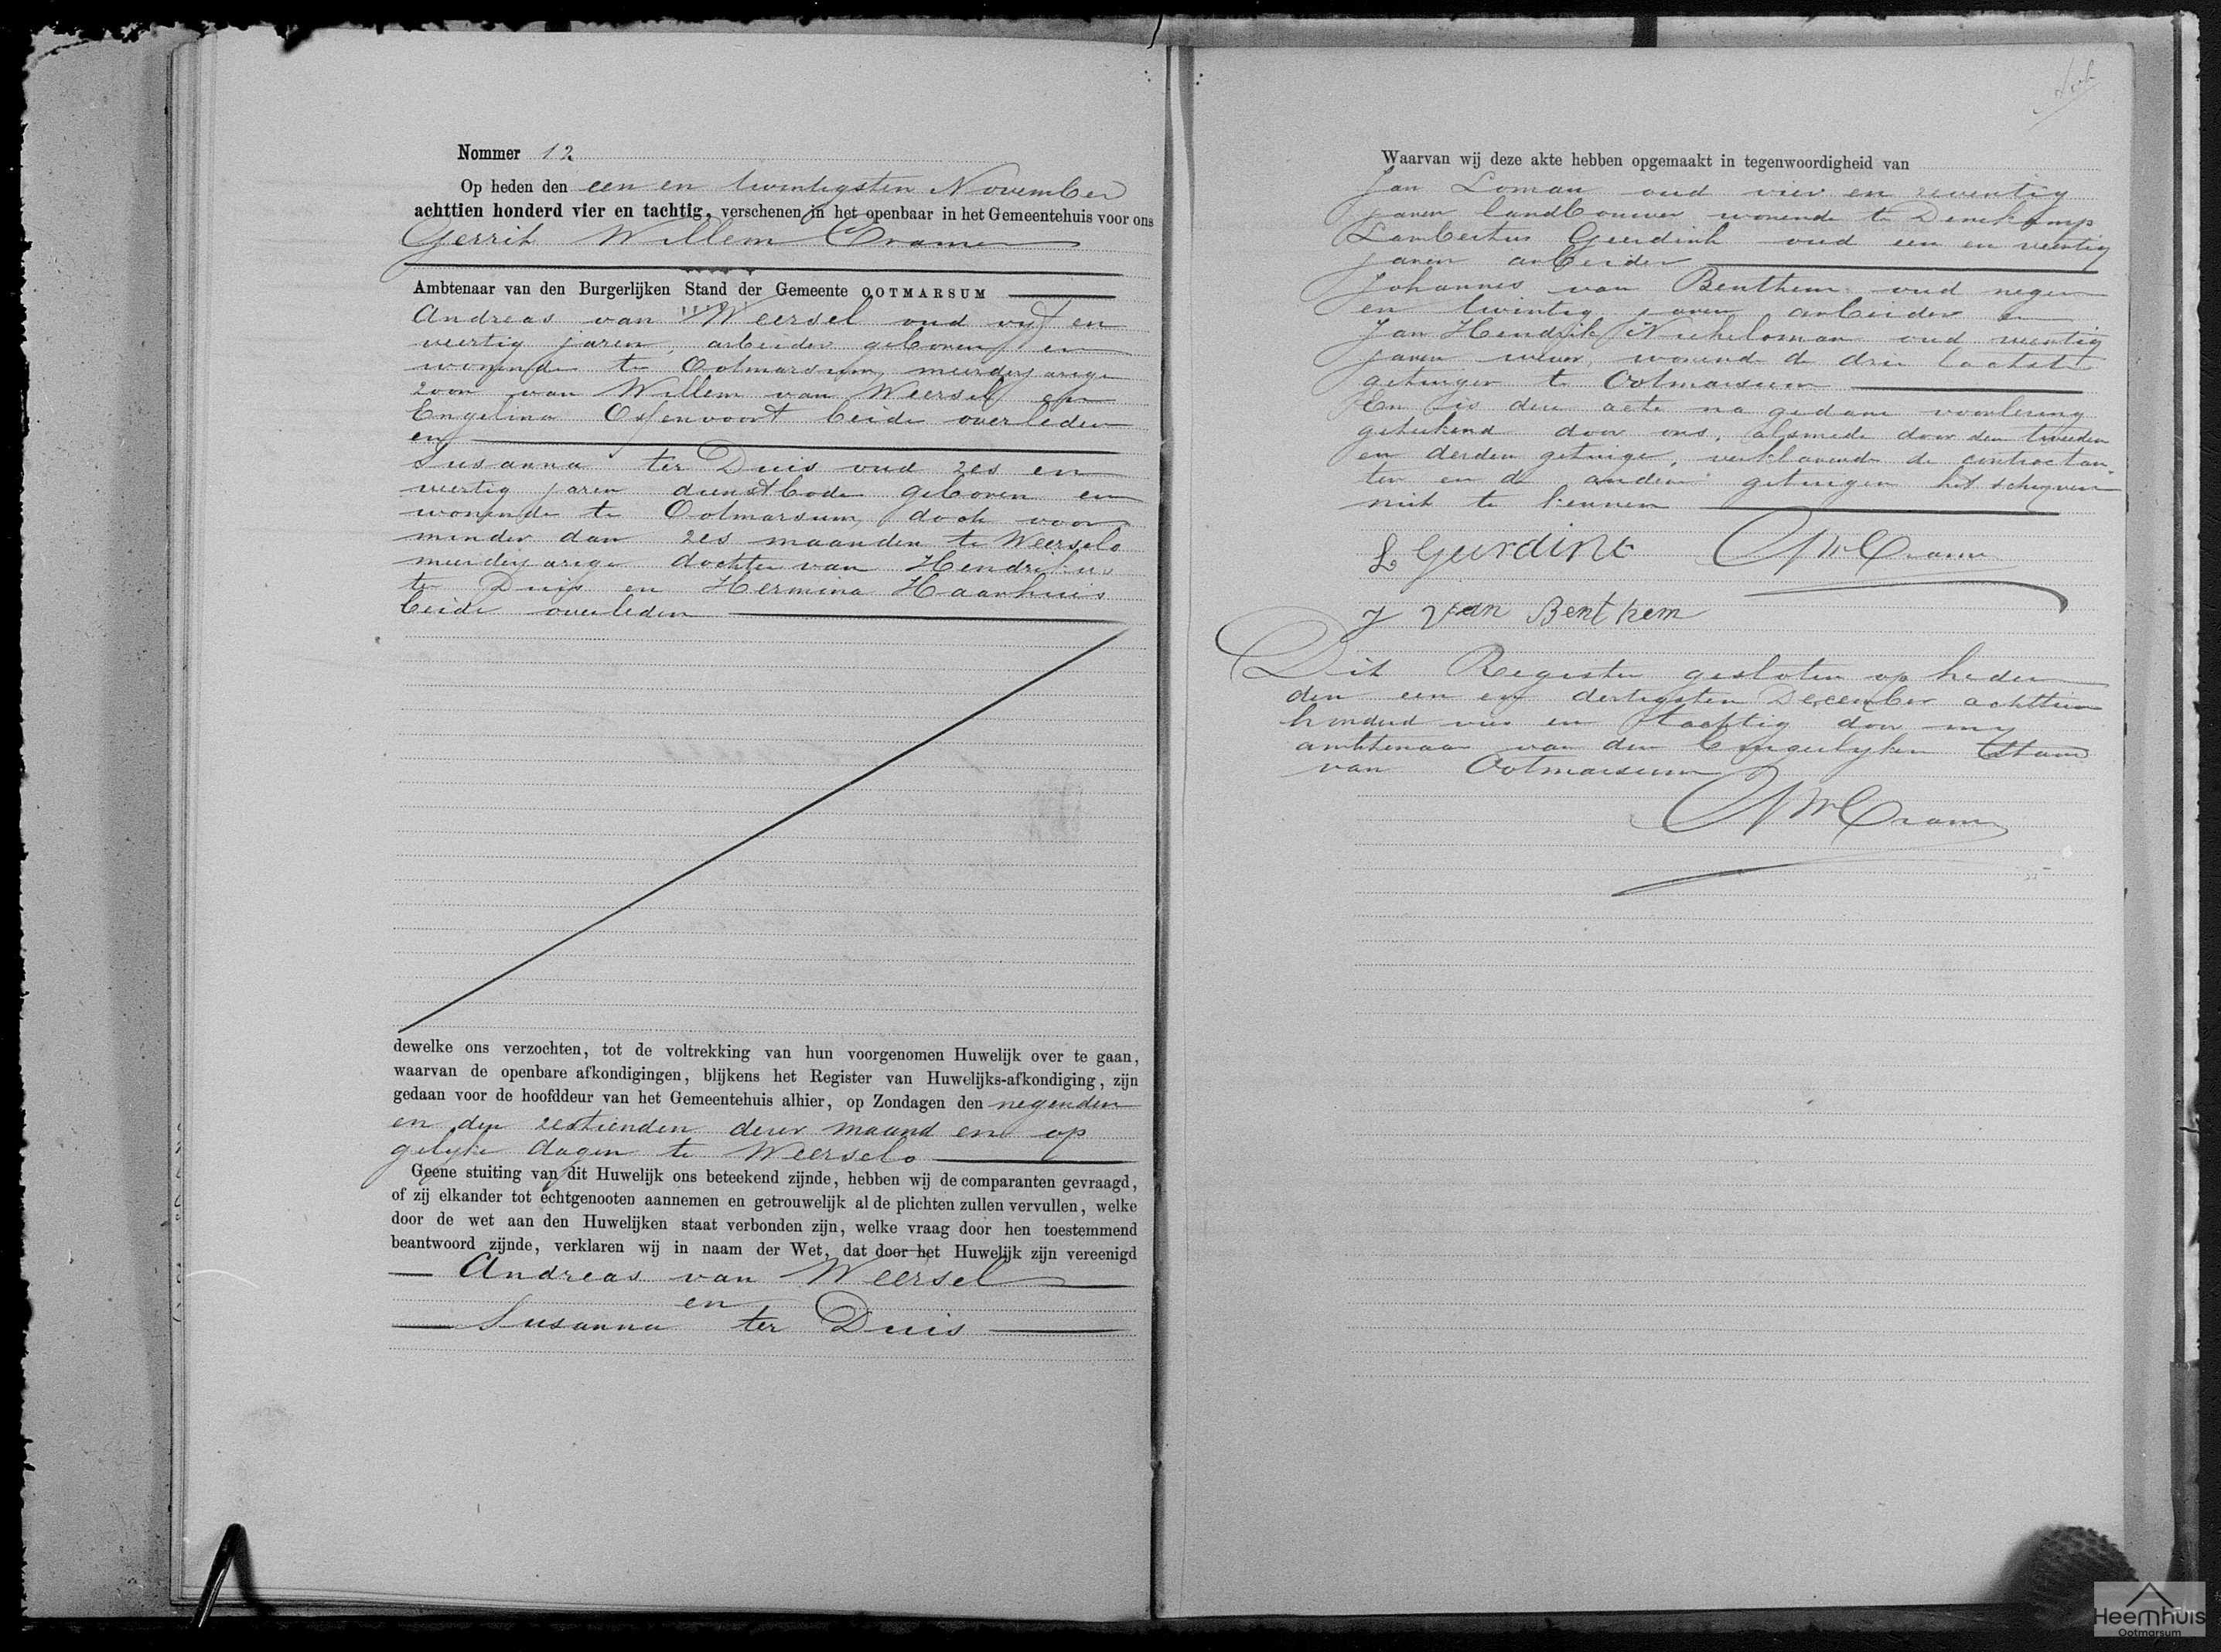 Nommer 12
Op heden den een en twintigsten November
achttien honderd vier en tachtig, verschenen in het openbaar in het Gemeentehuis voor ons
Gerrit Willem Cramer
Ambtenaar van den Burgerlijken Stand der Gemeente OOTMARSUM
Andreas van Weersel oud vyf en
veertig jaren, arbeider geboren en
wonende te Ootmarsum, meerderjarige
zoon van Willem van Weersel en
Engelina Ossenvoort beide overleden
en
Susanna ter Duis oud zes en
veertig jaren dienstbode geboren en
wonende te Ootmarsum, doch voor
minder dan zes maanden te Weerselo
meerderjarige dochter van Hendrikus
ter Duis en Hermina Haarhuis
beide overleden
dewelke ons verzochten, tot de voltrekking van hun voorgenomen Huwelijk over te gaan,
waarvan de openbare afkondigingen, blijkens het Register van Huwelijks-afkondiging, zijn
gedaan voor de hoofddeur van het Gemeentehuis alhier, op Zondagen den negenden
en den zestienden dezer maand en op
gelyke dagen te Weerselo
Geene stuiting van dit Huwelijk ons beteekend zijnde, hebben wij de comparanten gevraagd,
of zij elkander tot echtgenooten aannemen en getrouwelijk al de plichten zullen vervullen, welke
door de wet aan den Huwelijken staat verbonden zijn, welke vraag door hen toestemmend
beantwoord zijnde, verklaren wij in naam der Wet, dat door het Huwelijk zijn vereenigd
Andreas van Weersel
en
Susanna ter Duis
Waarvan wij deze akte hebben opgemaakt in tegenwoordigheid van
Jan Loman oud vier en zeventig
jaren landbouwer wonende te Denekamp
Lambertus Geerdink oud een en veertig
jaren arbeider
Johannes van Benthem oud negen
en twintig jaren arbeider en
Jan Hendrik oud veertig
jaren wever, wonende de drie laatste
getuigen te Ootmarsum
En is deze acte na gedane voorlezing
geteekend door ons, alsmede door den tweeden
en derden getuige, verklarende de contractan-
ten en de andere getuigen het schryven
niet te kennen
L Geerdink GWCramer
J van Benthem
Dit Register gesloten op heden
den een en dertigsten December achttien
honderd vier en tachtig door my
ambtenaar van den Burgerlyken Stand
van Ootmarsum
GWCramer
Heemhuis
Ootmarsum